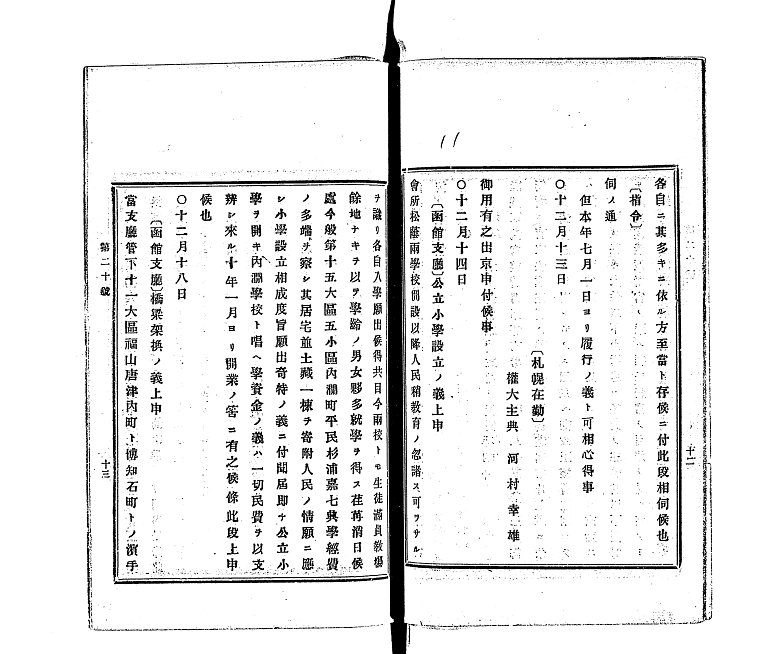 11
各自ニ其多キニ依ル方至當ト存候ニ付此段相伺候也
〔指令〕
伺ノ通
但本年七月一日ヨリ履行ノ義ト可相心得事
〇十二月十三日
〔札幌在勤〕
權大主典 河村幸雄
御用有之出京申付候事
〇十二月十四日
〔函館支廳〕公立小學設立ノ義上申
會所松蔭兩學校開設以降人民稍教育ノ忽諸ス可ラサル
十二
ヲ識リ各自入學願出候得共目今兩校トモ生徒滿員教場
餘地ナキヲ以テ學齡ノ男女夥多就學ヲ得ス荏苒消日候
處今般第十五大區五小區內澗町平民杉浦嘉七典學經費
ノ多端ヲ察シ其居宅並土藏一棟ヲ寄附人民ノ情願ニ應
シ小學設立相成度旨願出奇特ノ義ニ付聞屆即チ公立小
學ヲ開キ內澗學校ト唱ヘ學資金ノ義ハ一切民費ヲ以支
辨シ來ル十年一月ヨリ開業ノ筈ニ有之候條此段上申
候也
〇十二月十八日
〔函館支廳〕橋梁架換ノ義上申
當支廳管下十二大區福山唐津內町ト博知石町トノ濱手
第二十號
十三